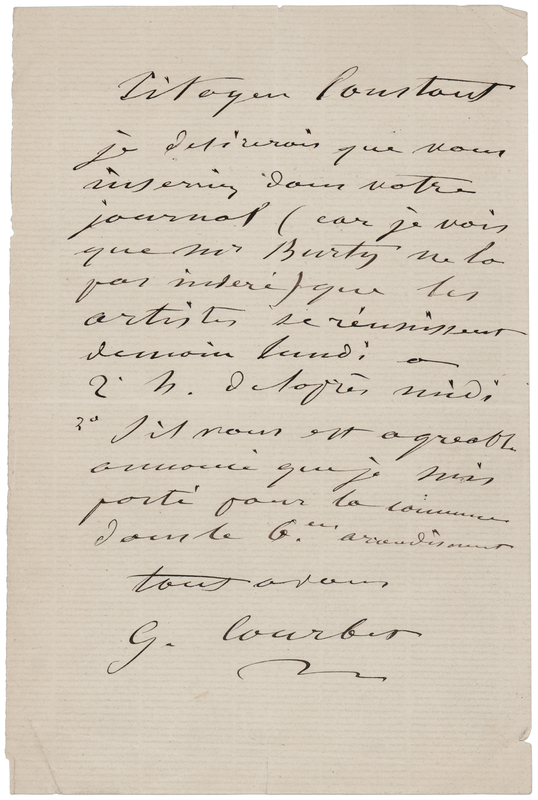 Citoyen Constant
je desirerais que vous
inserriez dans votre
journal (car je vois
que mr Burty ne la
pas inseré) que les
artistes se réunissent
demain lundi a
2 h. de laprès midi
2o S'il vous est agreable
annoncé que je suis
porté pour la commune
dans le 6.em arrondissment
tout a vous
G. Courbet